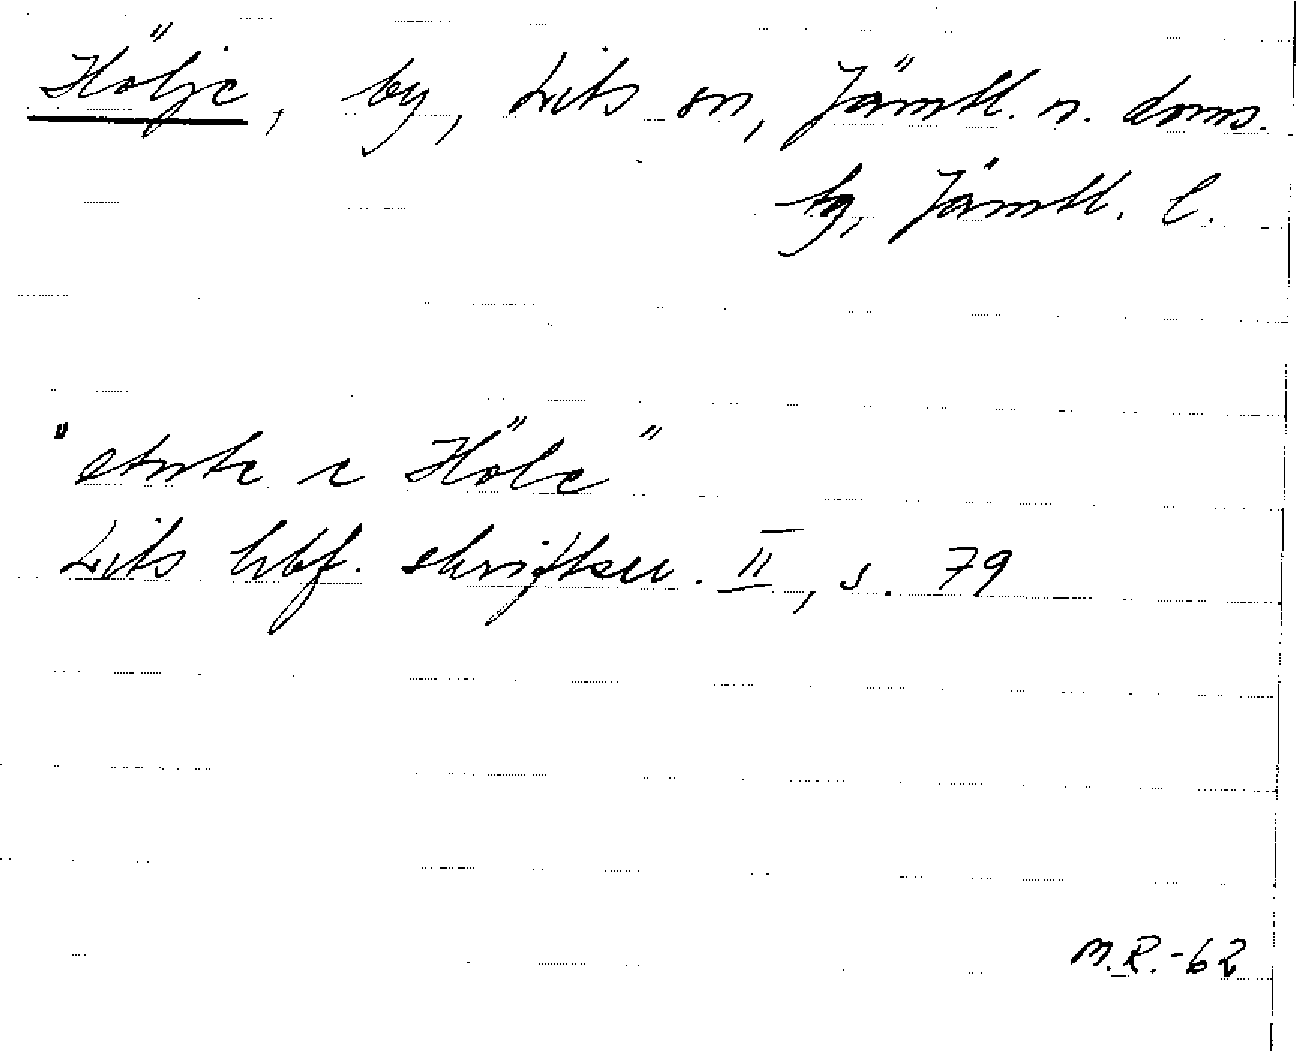 Hölje, by, Lits sn, Jämtl. n. doms.
sg, Jämtl. l.
" i Höle"
Lits hbf. skriftser. II, s. 79
M.R.-62